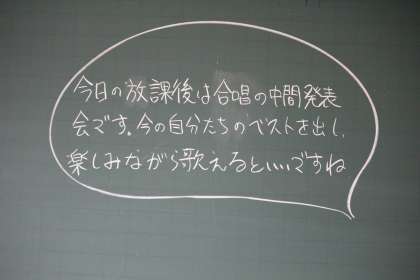 今日の放課後は合唱の中間発表
会です。今の自分たちのベストを出し、
楽しみながら歌えるといいですね